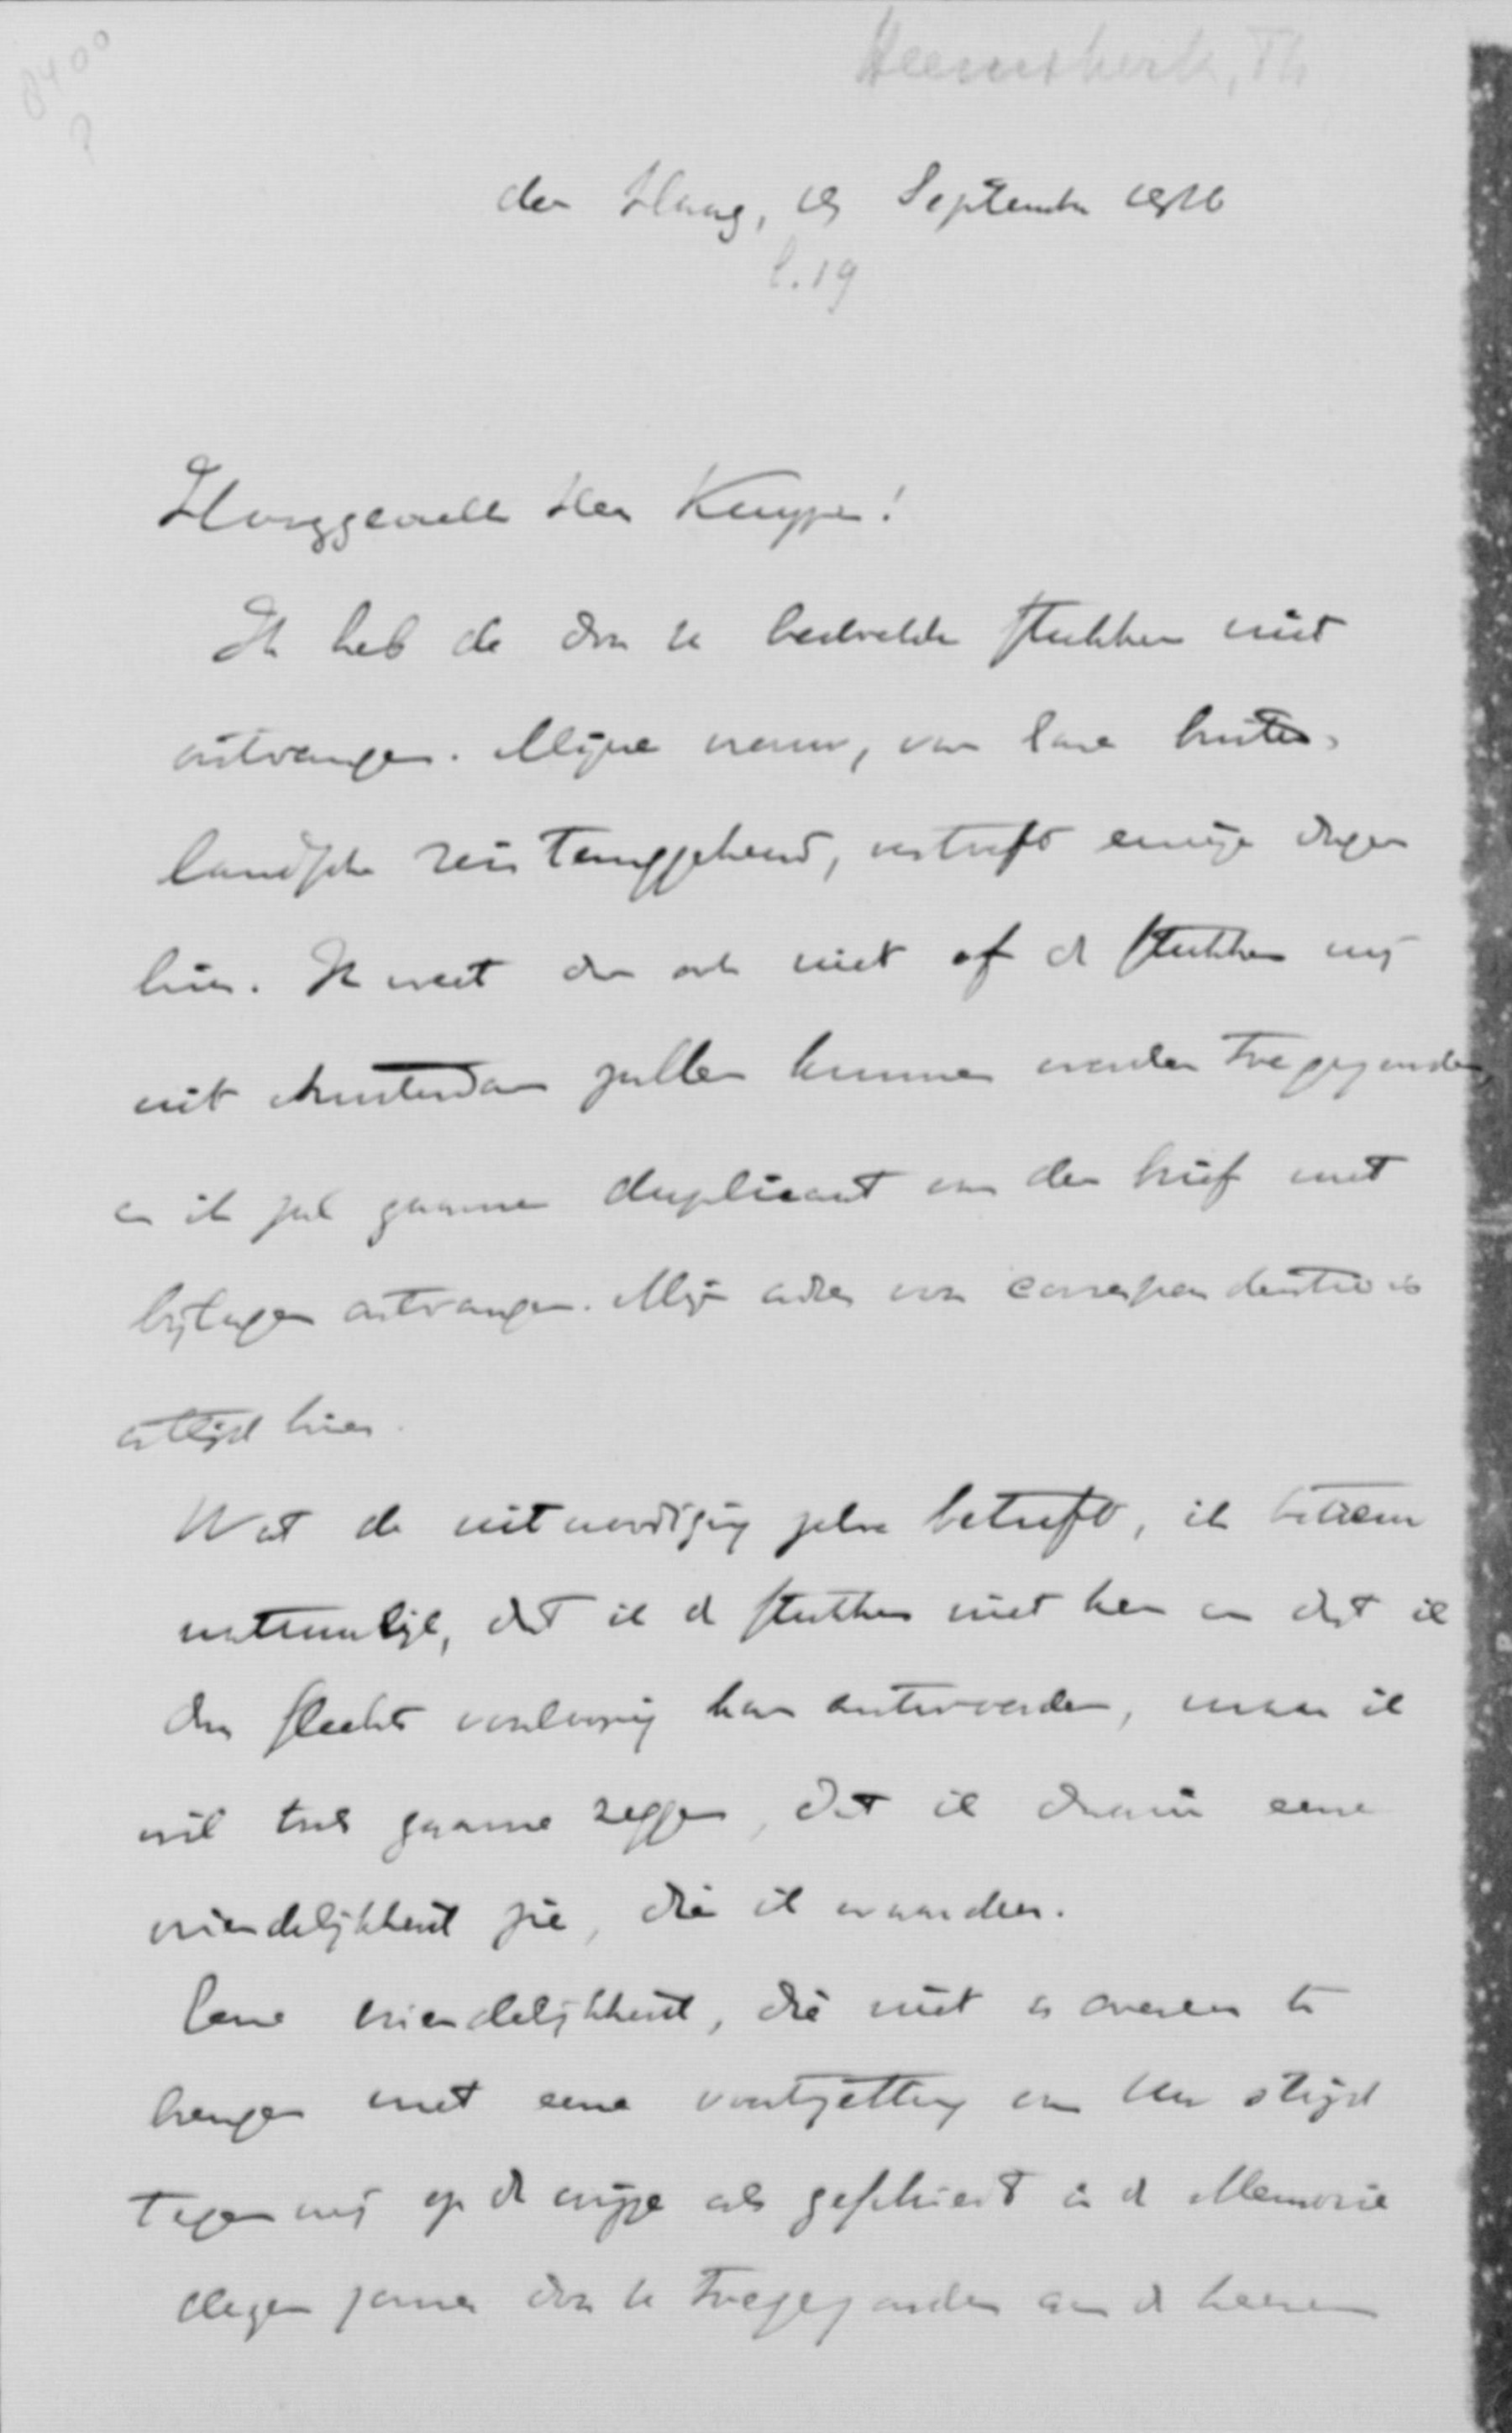 8400
?
Heemskerk, Th
den Haag, 19 September 1916
l. 19
Hooggeachte Heer Kuyper!
Ik heb de door U bedoelde stukken niet
ontvangen. Mijne vrouw, van hare buiten-
landsche reis teruggekeerd, vertreft eenige dagen
hier. Ik weet dan ook niet of de stukken mij
uit Amsterdam zullen kunnen worden toegezonden,
en ik zal gaarne duplicaat van den brief met
bijlagen ontvangen. Mijn adres voor correspondentie is
altijd hier.
Wat de uitnoodiging zelve betreft, ik
natuurlijk, dat ik de stukken niet ken en dat ik
dus slechts voorloopig kan antwoorden, maar ik
wil toch gaarne zeggen, dat ik daarin eene
vriendelijkheid zie, die ik waardeer.
Eene vriendelijkheid, die niet is overeen te
brengen met eene voortzetting van Uw strijd
tegen mij op de wijze als geschiedt in de Memorie
dezen zomer door U toegezonden aan de heeren